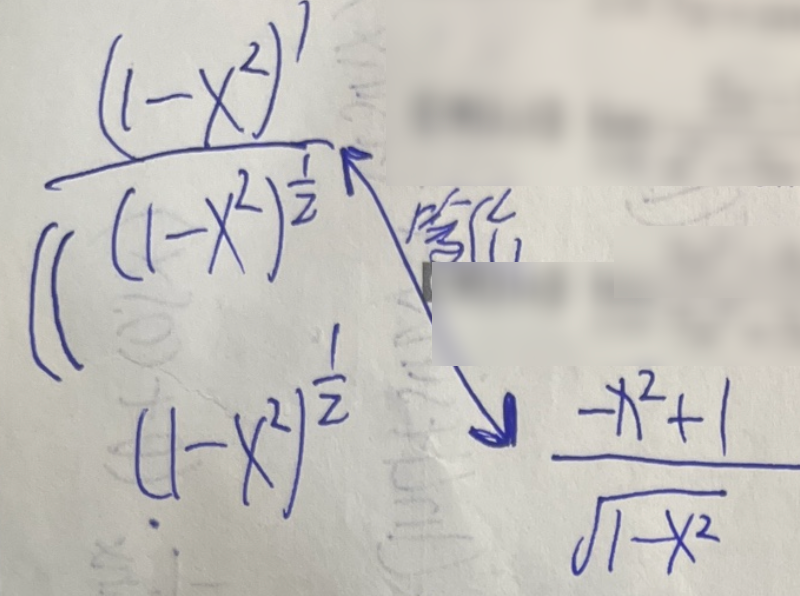 (1-x²)¹
(1-x²)^½
(1-x²)^½
-x²+1
√1-x²